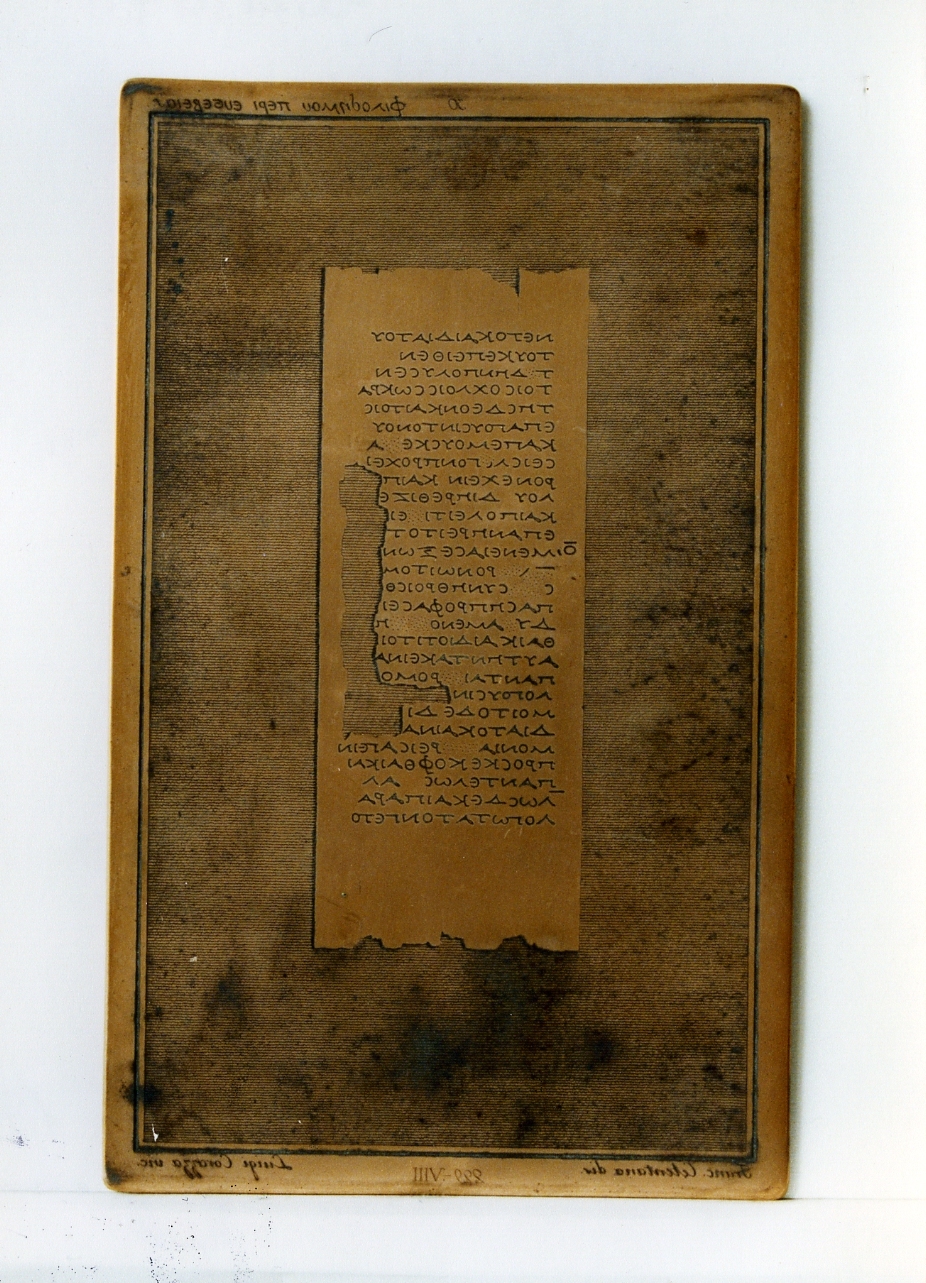 Φιλοδημου περι ευσεβειας
ΝΕΤΟΚΑΙΔΙΑΤΟΥ
ΤΟΥΚΕΠΕΙΘΕΝ
Τ ΔΗΠΟΛΥCΕΝ
ΤΟΙCΟΧΛΟΙCCΩΚΡΑ
ΤΗCΔΕΟΝΚΑΙΤΟΙC
ΕΠΑΓΟΥCΙΝΤΙΝΟΥ
ΚΑΠΕΜΟΥCΚΕ Α
CΕΙCΛΓΟΝΠΡΟΧΕΙ
ΡΟΝΕΧΕΙΝ ΚΑΙΠ
ΛΟΥ ΔΙΗΡΕΘΙΖΕ
ΚΑΙΠΟΛΕΙΤΙ ΕΙ
ΕΠΑΝΗΡΕΙΤΟΤ
ΜΕΝΕΙΕΑCΕΞΩΝ
ΡΟΝΩΙΤΟΜ
C CΥΝΗΘΡΟΙCΘ
ΠΑCΗΠΡΟΦΑCΕΙ
ΔΥ ΑΜΕΝΟ Η
ΘΑΙΚΑΙΔΙΟΤΙΤΟΙ
ΑΥΤΗΝΤΑΚΕΙΝΑ
ΠΑΝΤΑΙ ΡΟΜΟ
ΛΟΓΟΥCΙΝ
ΜΟΙΤΟΔΕ ΔΙ
ΔΙΑΤΟΚΑΙΝΑ
ΜΟΝΙΑ ΡΕΙCΑΓΕΙΝ
ΠΡΟCΚΕΚΟΦΘΑΙΚΑΙ
ΠΑΝΤΕΛΩC ΑΛ
ΛΩCΔΕΚΑΙΠΑΡΑ
ΛΟΓΩΤΑΤΟΝΓΕΤΟ
Franc. Celentana dis. 229-VIII Luigi Corazza inc.